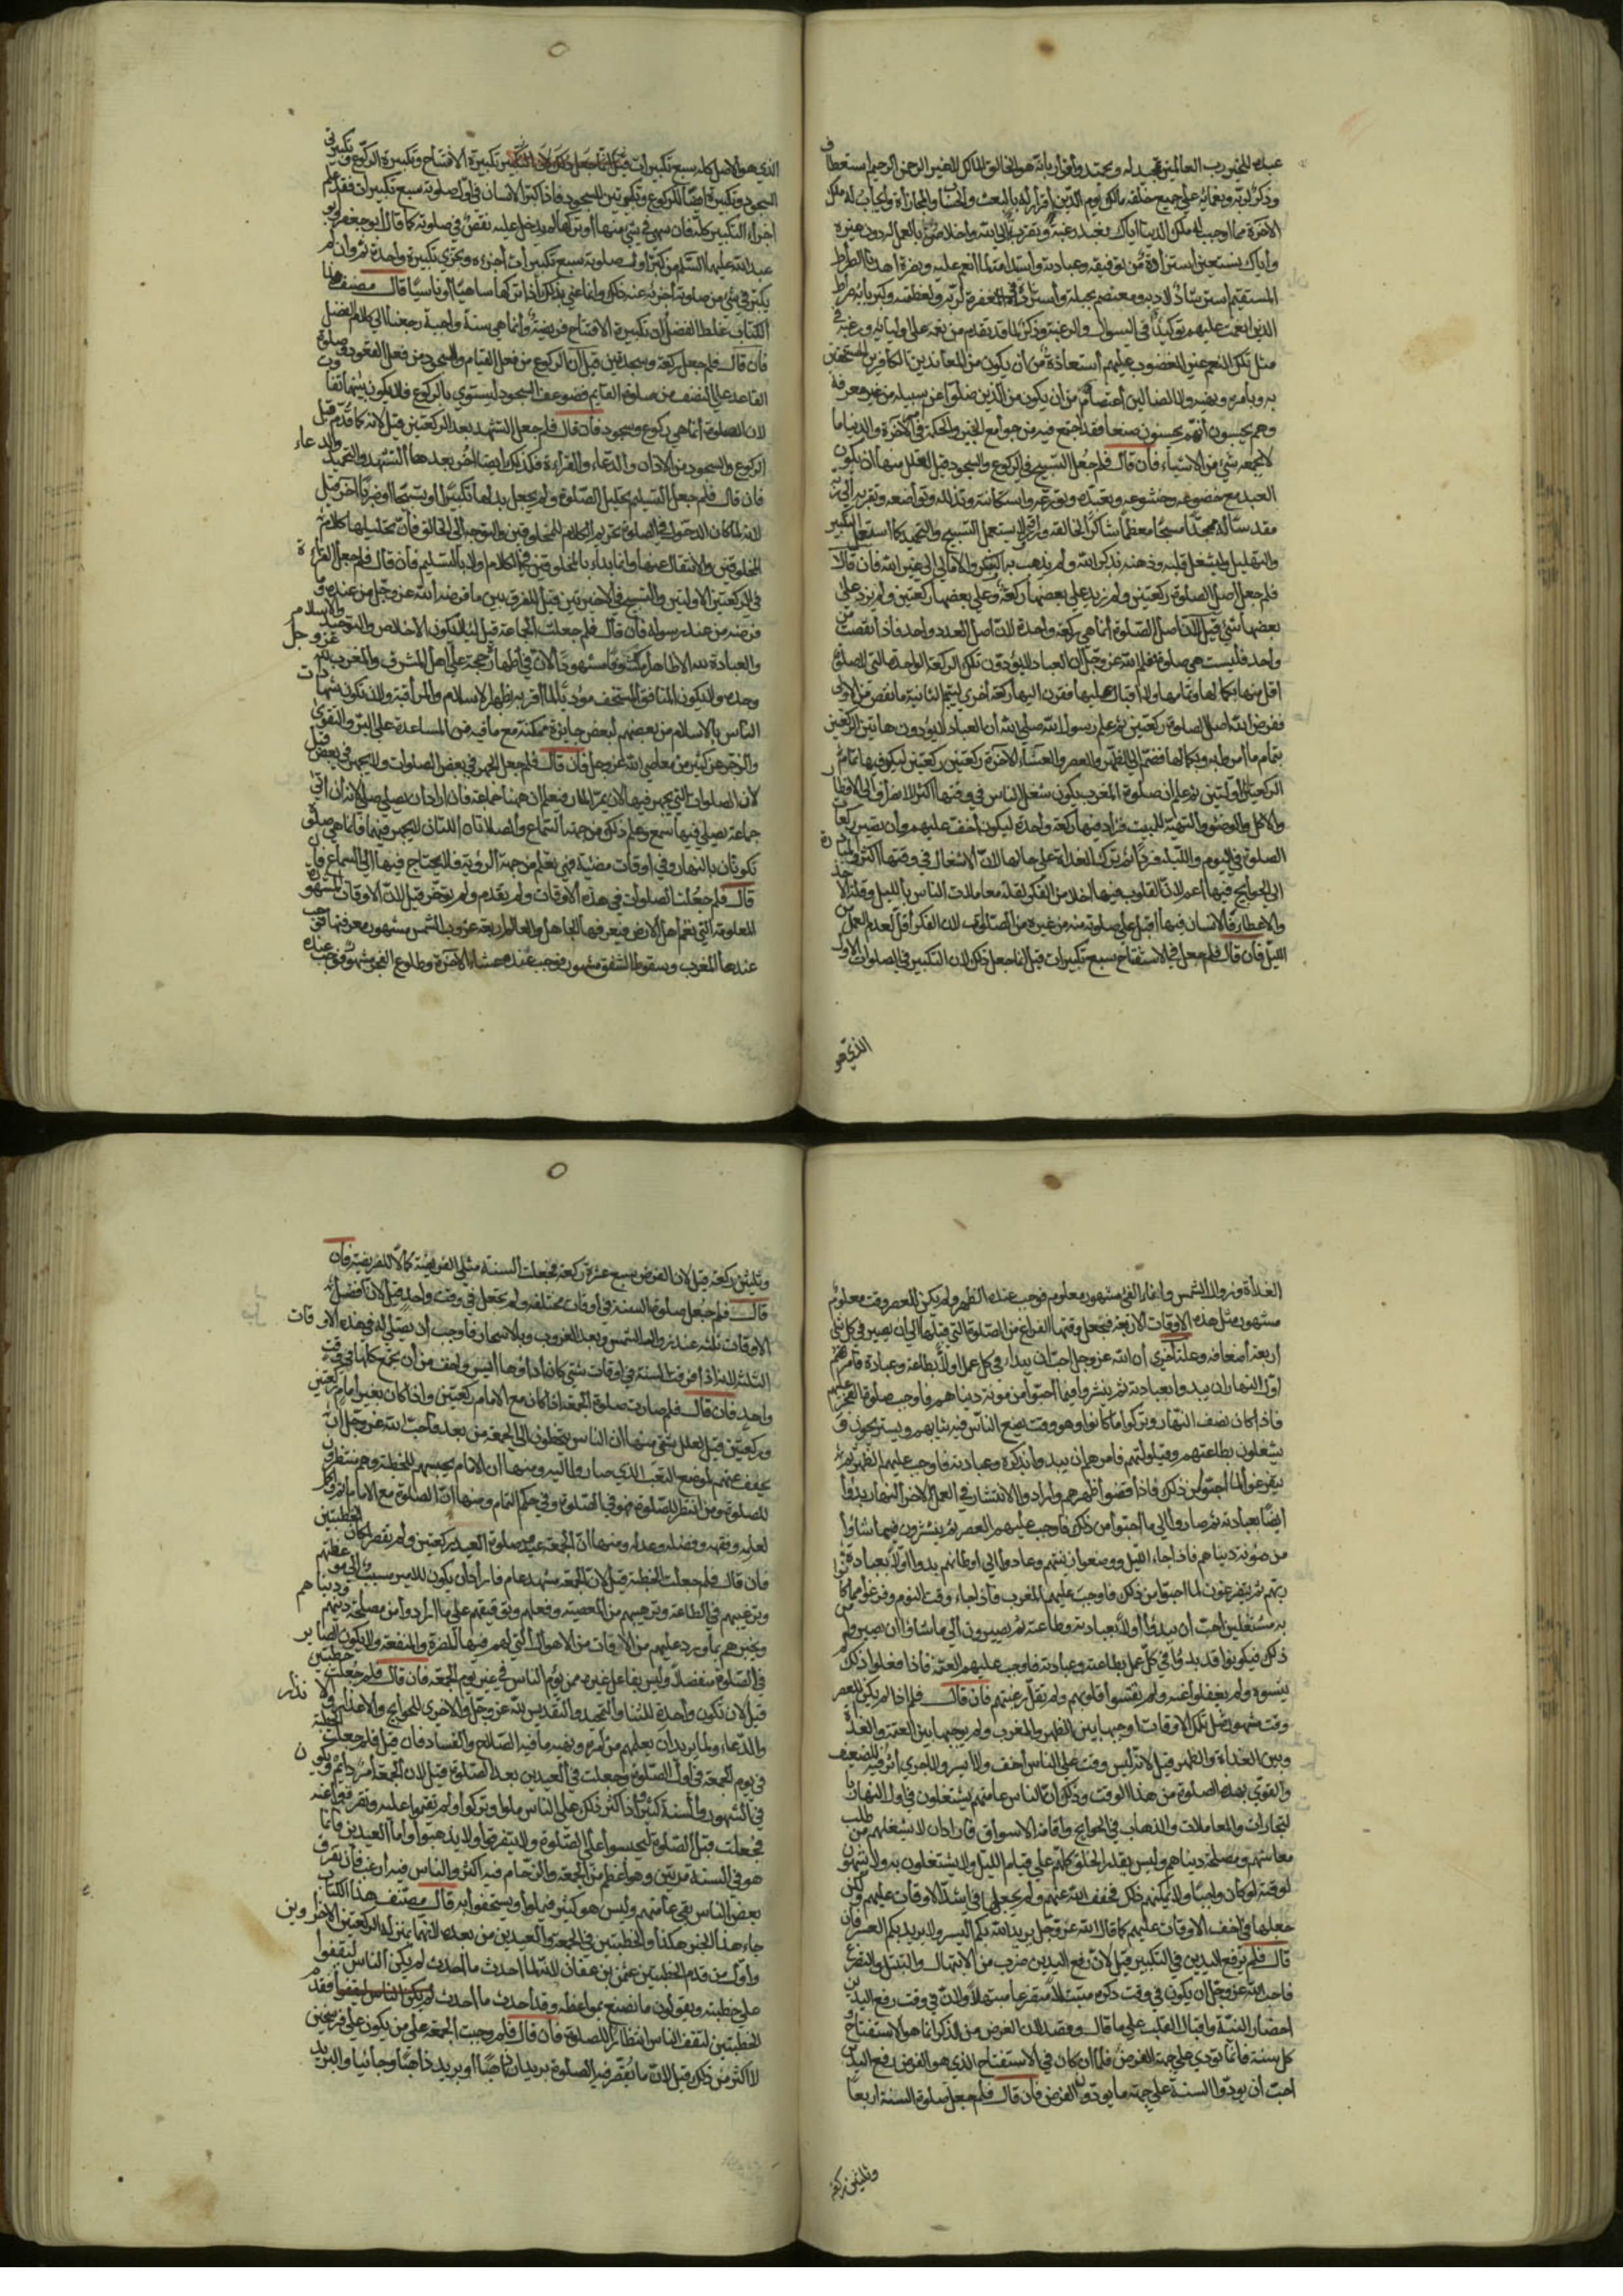 عبده للخير رب العالمين تمجيد له وتحميد وإقرار بانه هو الخالق المالك لا غير الرحمن الرحيم استعطاف
وذكر لربه ونعمائه على جميع خلقه مالك يوم الدين إقرار له بالبعث والحساب والمجازاة وايجاب له ملك
الآخرة كما اوجب له ملك الدنيا اياك نعبد رغبة وتقرب إلى الله واخلاص بالعمل له دون غيره
واياك نستعين استزادة من توفيقه وعبادته واستدامة لما انعم عليه وبصره اهدنا الصراط
المستقيم استرشاد لادبه ومعتصم بحبله واستزادة في المعرفة لربه ولعظمته وكبريائه صراط
الذين انعمت عليهم توكيد في السؤال والرغبة وذكر لما قد تقدم من نعمه على اوليائه ورغبة في
مثل تلك النعم غير المغضوب عليهم استعاذة من ان يكون من المعاندين الكافرين المستخفين
به وبامره ونهيه ولا الضالين اعتصام من ان يكون من الذين ضلوا عن سبيله من غير معرفة
وهم يحسبون انهم يحسنون صنعا فقد اجتمع فيه من جوامع الخير والحكمة في الآخرة والدنيا ما
لا يجمعه شئ من الاشياء فان قال فلم جعل التسبيح في الركوع والسجود قيل لعلل منها ان يكون
العبد مع خضوعه وخشوعه وتعبده وتورعه واستكانته وتذلله وتواضعه وتقربه إلى ربه
مقدسا له ممجدا مسبحا معظما شاكرا لخالقه ورازقه وليستعمل التسبيح والتحميد كما استعمل التكبير
والتهليل وليشغل قلبه وذهنه بذكر الله ولم يذهب به الفكر والاماني إلى غير الله فان قال
فلم جعل اصل الصلوة ركعتين ولم زيد على بعضها ركعة وعلى بعضها ركعتين ولم يزد على
بعضها شئ قيل لان اصل الصلوة انما هي ركعة واحدة لان اصل العدد واحد فاذا نقصت من
واحد فليست هي صلوة فعلم الله عز وجل ان العباد لا يؤدون تلك الركعة الواحدة التي لا صلوة
اقل منها بكمالها وتمامها والاقبال عليها فقرن اليها ركعة اخرى ليتم بالثانية ما نقص من الاولى
ففرض الله اصل الصلوة ركعتين ثم علم رسول الله صلى الله ان العباد لا يؤدون هاتين الركعتين
بتمام ما امروا به وبكمالها فضم إلى الظهر والعصر والعشاء الآخرة ركعتين ركعتين ليكون فيها تمام
الركعتين الاولتين ثم علم ان صلوة المغرب يكون شغل الناس في وقتها اكثر للانصراف إلى الافطار
والاكل والوضوء والتهيئة للمبيت فزاد فيها ركعة واحدة ليكون اخف عليهم وان تصير ركعات
الصلوة في اليوم والليلة فردا ثم ترك الغداة على حالها لان الاشتغال في وقتها اكثر والمبادرة
إلى الحوايج فيها اعم ولان القلوب فيها اخلا من الفكر لقلة معاملات الناس بالليل وقلة الاخذ
والاعطاء فالانسان فيها اقبل على صلوته منه من غيره من الصلوات لان الفكر اقل لعدم العمل من
الليل فان قال فلم جعل في الاستفتاح سبع تكبيرات قيل انما جعل ذلك لان التكبير في الصلوات الاول
الذي هو
الذي هو الاصل كله سبع تكبيرات قيل انما جعل ذلك لان التكبير تكبيرة الافتتاح وتكبيرة الركوع وتكبيرتي
السجود وتكبيرة ايضا للركوع وتكبيرتين للسجود فاذا كبر الانسان في اول صلوته سبع تكبيرات فقد علم
اجزاء التكبير كله فان سهى في شئ منها او تركها لم يدخل عليه نقص في صلوته كما قال ابو جعفر وابو
عبد الله عليهما السلام من كبر اول صلوته سبع تكبيرات اجزءه وتجزي تكبيرة واحدة ثم وان لم
يكبر في شئ من صلوته اجزءه عنه ذلك وانما عنى بذلك اذا تركها ساهيا او ناسيا قال مصنف هذا
الكتاب غلط الفضل ان تكبيرة الافتتاح فريضة وانما هي سنة واجبة رجعنا إلى كلام الفضل
فان قال فلم جعل ركعة وسجدتين قيل لان الركوع من فعل القيام والسجود من فعل القعود وصلوة
القاعد على النصف من صلوة القايم فضوعف السجود ليستوي بالركوع فلا يكون بينهما تفاوت
لان الصلوة انما هي ركوع وسجود فان قال فلم جعل التشهد بعد الركعتين قيل لانه كما قدم قبل
الركوع والسجود من الاذان والدعاء والقراءة فكذلك ايضا اخر بعدها التشهد والتحميد والدعاء
فان قال فلم جعل التسليم تحليل الصلوة ولم يجعل بدلها تكبيرا او تسبيحا او ضربا آخر قيل
لانه لما كان الدخول في الصلوة تحريم الكلام للمخلوقين والتوجه إلى الخالق فان تحليلها كلام
المخلوقين والانتقال عنها وانما بداء بالمخلوقين في الكلام اولا بالتسليم فان قال فلم جعل القراءة
في الركعتين الاولتين والتسبيح في الاخيرتين قيل للفرق بين ما فرضه الله عز وجل من عنده وما
فرضه من عند رسوله فان قال فلم جعلت الجماعة قيل لئلا يكون الاخلاص والتوحيد والاسلام
والعبادة لله الا ظاهرا مكشوفا مشهودا لان في اظهاره حجة على اهل المشرق والمغرب لله عز وجل
وحده وليكون المنافق المستخف مؤديا لما اقر به بظهر الاسلام والمراقبة ولان تكون شهادات
الناس بالاسلام من بعضهم لبعض جايزة ممكنة مع ما فيه من المساعدة على البر والتقوى
والزجر عن كثير من معاصي الله عز وجل فان قال فلم جعل الجهر في بعض الصلوات ولا يجهر في بعض قيل
لان الصلوات التي يجهر فيها لان يمر المار فيعلم ان ههنا جماعة فان اراد ان يصلي صلى لانه ان لم ير
جماعة يصلي فيها سمع وعلم ذلك من جهة السماع والصلاتان اللتان لا يجهر فيهما فانما هي صلوة
تكونان بالنهار وفي اوقات مضيئة فهي تعلم من جهة الرؤية فلا يحتاج فيها إلى السماع فان
قال فلم جعلت الصلوات في هذه الاوقات ولم تقدم ولم تؤخر قيل لان الاوقات المشهورة
المعلومة التي تعم اهل الارض فيعرفها الجاهل والعالم اربعة غروب الشمس مشهور معرفتها فتجب
عندها المغرب وسقوط الشفق مشهور فوجب عنده عشاء الآخرة وطلوع الفجر مشهور فوجب عنده
الغداة وزوال الشمس وايفاء الفئ مشهور معلوم فوجب عنده الظهر ولم يكن للعصر وقت معلوم
مشهور مثل هذه الاوقات الاربعة فجعل وقتها الفراغ من الصلوة التي قبلها إلى ان يصير في كل شئ
اربعة اضعافه وعلة اخرى ان الله عز وجل احب ان يبدأ في كل عمل اولا بطاعة وعبادة فامرهم
اول النهار ان يبدوا بعبادته ثم ينتشروا فيما احبوا من مؤنة دنياهم فاوجب صلوة الفجر عليهم
فاذا كان نصف النهار وتركوا ما كانوا وهو وقت يضع الناس فيه ثيابهم ويستريحون و
يشغلون بطاعتهم وقيلولتهم فامرهم ان يبدوا بذكره وعبادته فاوجب عليهم الظهر ثم
يتفرغوا لما احبوا من ذلك فاذا قضوا ظهرهم وارادوا الانتشار في العمل لآخر النهار بدؤا
ايضا بعبادته ثم صاروا إلى ما احبوا من ذلك فاوجب عليهم العصر ثم ينتشرون فيما شاؤا
من مؤنة دنياهم فاذا جاء الليل ووضعوا زينتهم وعادوا إلى اوطانهم بدوا اولا بعبادة
ربهم ثم يتفرغون لما احبوا من ذلك فاوجب عليهم المغرب فاذا جاء وقت النوم وفرغوا مما كانوا
به مشتغلين احب ان يبدؤا اولا بعبادته وطاعته ثم يصيرون إلى ما شاؤا ان يصيروا من
ذلك فيكونوا قد بدؤا في كل عمل بطاعته وعبادته فاوجب عليهم العتمة فاذا فعلوا ذلك لم
ينسوه ولم يغفلوا عنه ولم تقسوا قلوبهم ولم تقل رغبتهم فان قال فلم اذا لم يكن للعصر
وقت مشهور مثل تلك الاوقات اوجبها بين الظهر والمغرب ولم يوجبها بين العتمة والغداة
وبين الغداة والظهر قيل لانه ليس وقت على الناس اخف ولا ايسر ولا احرى ان فيه للضعيف
والقوي بهذه الصلوة من هذا الوقت وذلك ان الناس عامتهم يشتغلون في اول النهار
لتجارات والمعاملات والذهاب في الحوايج واقامة الاسواق فاراد ان لا يشغلهم عن طلب
معاشهم ومصلحة دنياهم وليس يقدر الخلق كلهم على قيام الليل ولا يشتغلون به ولا ينتبهون
لوقته لو كان واجبا ولا يمكنهم ذلك فخفف الله عنهم ولم يجعلها في اشد الاوقات عليهم ولكن
جعلها في اخف الاوقات عليهم كما قال الله عز وجل يريد الله بكم اليسر ولا يريد بكم العسر فان
قال فلم ترفع اليدين في التكبير قيل لان رفع اليدين ضرب من الابتهال والتبتل والتضرع
فاحب الله عز وجل ان يكون في وقت ذكره متبتلا متضرعا مبتهلا ولان في وقت رفع اليدين
احضار النية واقبال القلب على ما قال وقصد لان الغرض من الذكر انما هو الاستفتاح و
كل سنة فانما تؤدي على جهة الغرض فلما ان كان في الاستفتاح الذي هو الفرض رفع اليدين
احب ان يؤدوا السنة على جهة ما يؤدون الفرض فان قال فلم جعل صلوة السنة اربعا
وثلثين ركعة
وثلثين ركعة قيل لان الفرض سبع عشرة ركعة فجعلت السنة مثلي الفريضة كمالا للفريضة فان
قال فلم جعل صلوة السنة في اوقات مختلفة ولم تجعل في وقت واحد قيل لان افضل
الاوقات ثلثة عند زوال الشمس وبعد الغروب وبالاسحار فاوجب ان يصلي له في هذه الاوقات
الثلثة لانه اذا فرقت السنة في اوقات شتى كان اداؤها ايسر واخف من ان تجمع كلها في وقت
واحد فان قال فلم صارت صلوة الجمعة اذا كان مع الامام ركعتين واذا كان بغير امام ركعتين
وركعتين قيل لعلل شتى منها ان الناس يتخطون إلى الجمعة من بعد فاحب الله عز وجل ان
يخفف عنهم لموضع التعب الذي صاروا اليه ومنها ان الامام يحبسهم للخطبة وهم منتظرون
للصلوة ومن انتظر الصلوة فهو في الصلوة وفي حكم التمام ومنها ان الصلوة مع الامام اتم واكمل
لعلمه وفقهه وفضله وعدله ومنها ان الجمعة عيد وصلوة العيد ركعتين ولم تقصر لمكان الخطبتين
فان قال فلم جعلت الخطبة قيل لان الجمعة مشهد عام فاراد ان يكون للامير سبب إلى موعظتهم
وترغيبهم في الطاعة وترهيبهم من المعصية وفعلهم وتوقيفهم على ما ارادوا من مصلحة دينهم ودنياهم
ويخبرهم بما ورد عليهم من الآفات من الاهوال التي لهم فيها المضرة والمنفعة ولا يكون الصاير
في الصلوة منفصلا وليس بفاعل غيره ممن يؤم الناس في غير يوم الجمعة فان قال فلم جعلت خطبتين
قيل لان تكون واحدة للثناء والتمجيد والتقديس لله عز وجل والاخرى للحوايج والاعذار والانذار
والدعاء ولما يريد ان يعلمهم من امره ونهيه ما فيه الصلاح والفساد فان قيل فلم جعلت الخطبة
في يوم الجمعة في اول الصلوة وجعلت في العيدين بعد الصلوة قيل لان الجمعة امر دايم ويكون
في الشهور والسنة كثيرا فاذا كثر ذلك على الناس ملوا وتركوا ولم يقيموا عليه وتفرقوا عنه
فجعلت قبل الصلوة ليحتبسوا على الصلوة ولا يتفرقوا ولا يذهبوا واما العيدين فانما
هو في السنة مرتين وهو اعظم من الجمعة والزحام فيه اكثر والناس فيه ارغب فان تفرق
بعض الناس بقي عامتهم وليس هو كثير فيملوا ويستخفوا به قال مصنف هذا الكتاب
جاء هذا الخبر هكذا والخطبتين في الجمعة والعيدين من بعده لانهما بمنزلة الركعتين الاخراوين
واول من قدم الخطبتين عثمن بن عفان لانه لما احدث ما احدث لم يكن الناس ليقفوا
على خطبته ويقولون ما نصنع بمواعظه وقد احدث ما احدث لم يكن الناس ليقفوا فقدم
الخطبتين لتقف الناس انتظارا للصلوة فان قال فلم وجبت الجمعة على من يكون على فرسخين
لا اكثر من ذلك قيل لان ما تقصر فيه الصلوة بريدان ذاهبا او بريد ذاهبا وجائيا والبريد